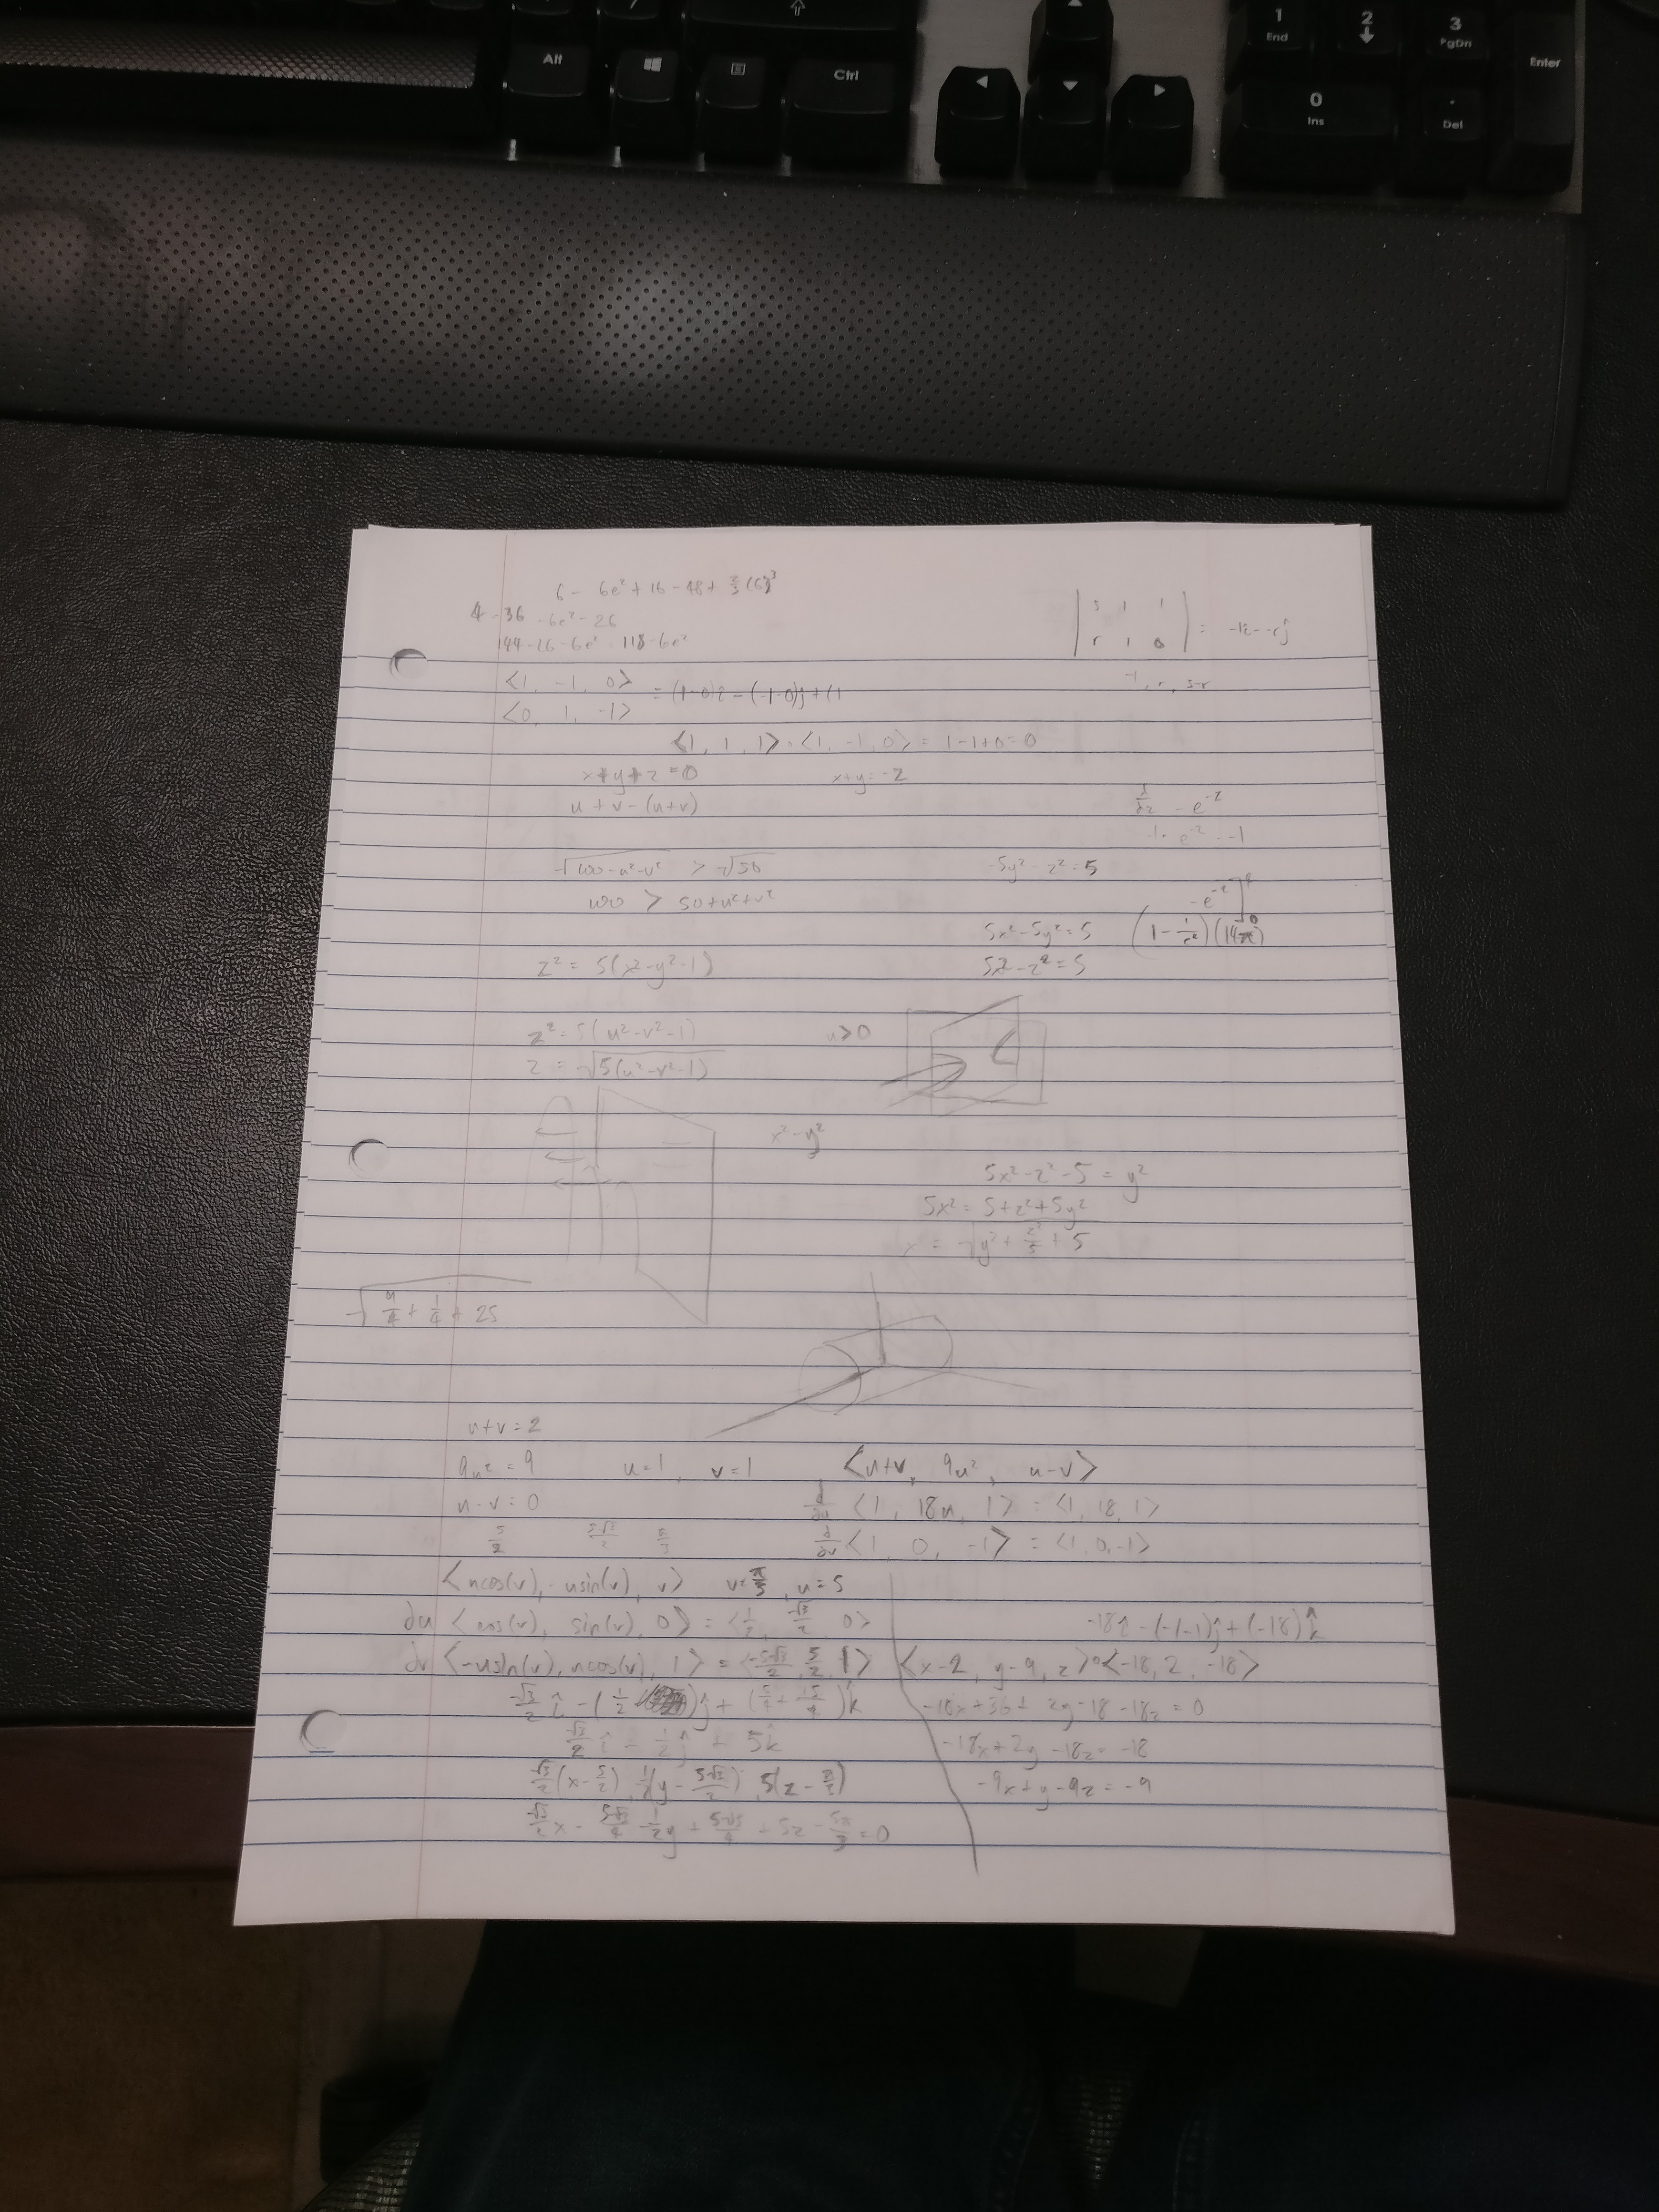 Alt
Ctrl
1
End
2
3
PgDn
Enter
0
Ins
.
Del
6 - 6e² + 16 - 48 +
4 - 36 - 6e² - 26
144 - 26 - 6e² 118 - 6e²
5 1 1
r 1 0
-1, r, s-r
<1, -1, 0>
<0, 1, -1>
= (1-0)i - (-1-0)j + (1
<1, 1, 1> · <1, -1, 0> = 1-1+0=0
x+y+z=0 x+y=-2
u+v-(u+v)
√(100-u²-v²) > √50
100 > 50+u²+v²
-5y²-z²=5
5x²-5y²=5
(1-1/e²)(14π)
z² = 5(x²-y²-1)
5x²-z²=5
z² = 5(u²-v²-1) u>0
z = √(5(u²-v²-1))
x²-y²
5x²-z²-5 = y²
5x² = 5+z²+5y²
x = √(y²+z²/5+5)
√(9/4+1/4+25)
u+v=2
9u²=9 u=1, v=1 <u+v, 9u², u-v>
u-v=0 d/du <1, 18u, 1> = <1, 18, 1>
5/2 5√3/2 π/3 d/dv <1, 0, -1> = <1, 0, -1>
<ucos(v), usin(v), v> v=π/3, u=5
du <cos(v), sin(v), 0> = <1/2, √3/2, 0>
-18î-(-1-1)ĵ+(-18)k̂
dv <-usin(v), ucos(v), 1> = <-5√3/2, 5/2, 1>
<x-2, y-9, z>·<-18, 2, -18>
√3/2 î - (1/2 )ĵ + (5/4+15/4)k̂
-18x+36+2y-18-18z=0
√3/2 î - 1/2 ĵ + 5k̂
-18x+2y-18z=-18
√3/2(x-5/2), -1/2(y-5√3/2), 5(z-π/3)
-9x+y-9z=-9
√3/2x - 5√3/4 - 1/2y + 5√3/4 + 5z - 5π/3=0